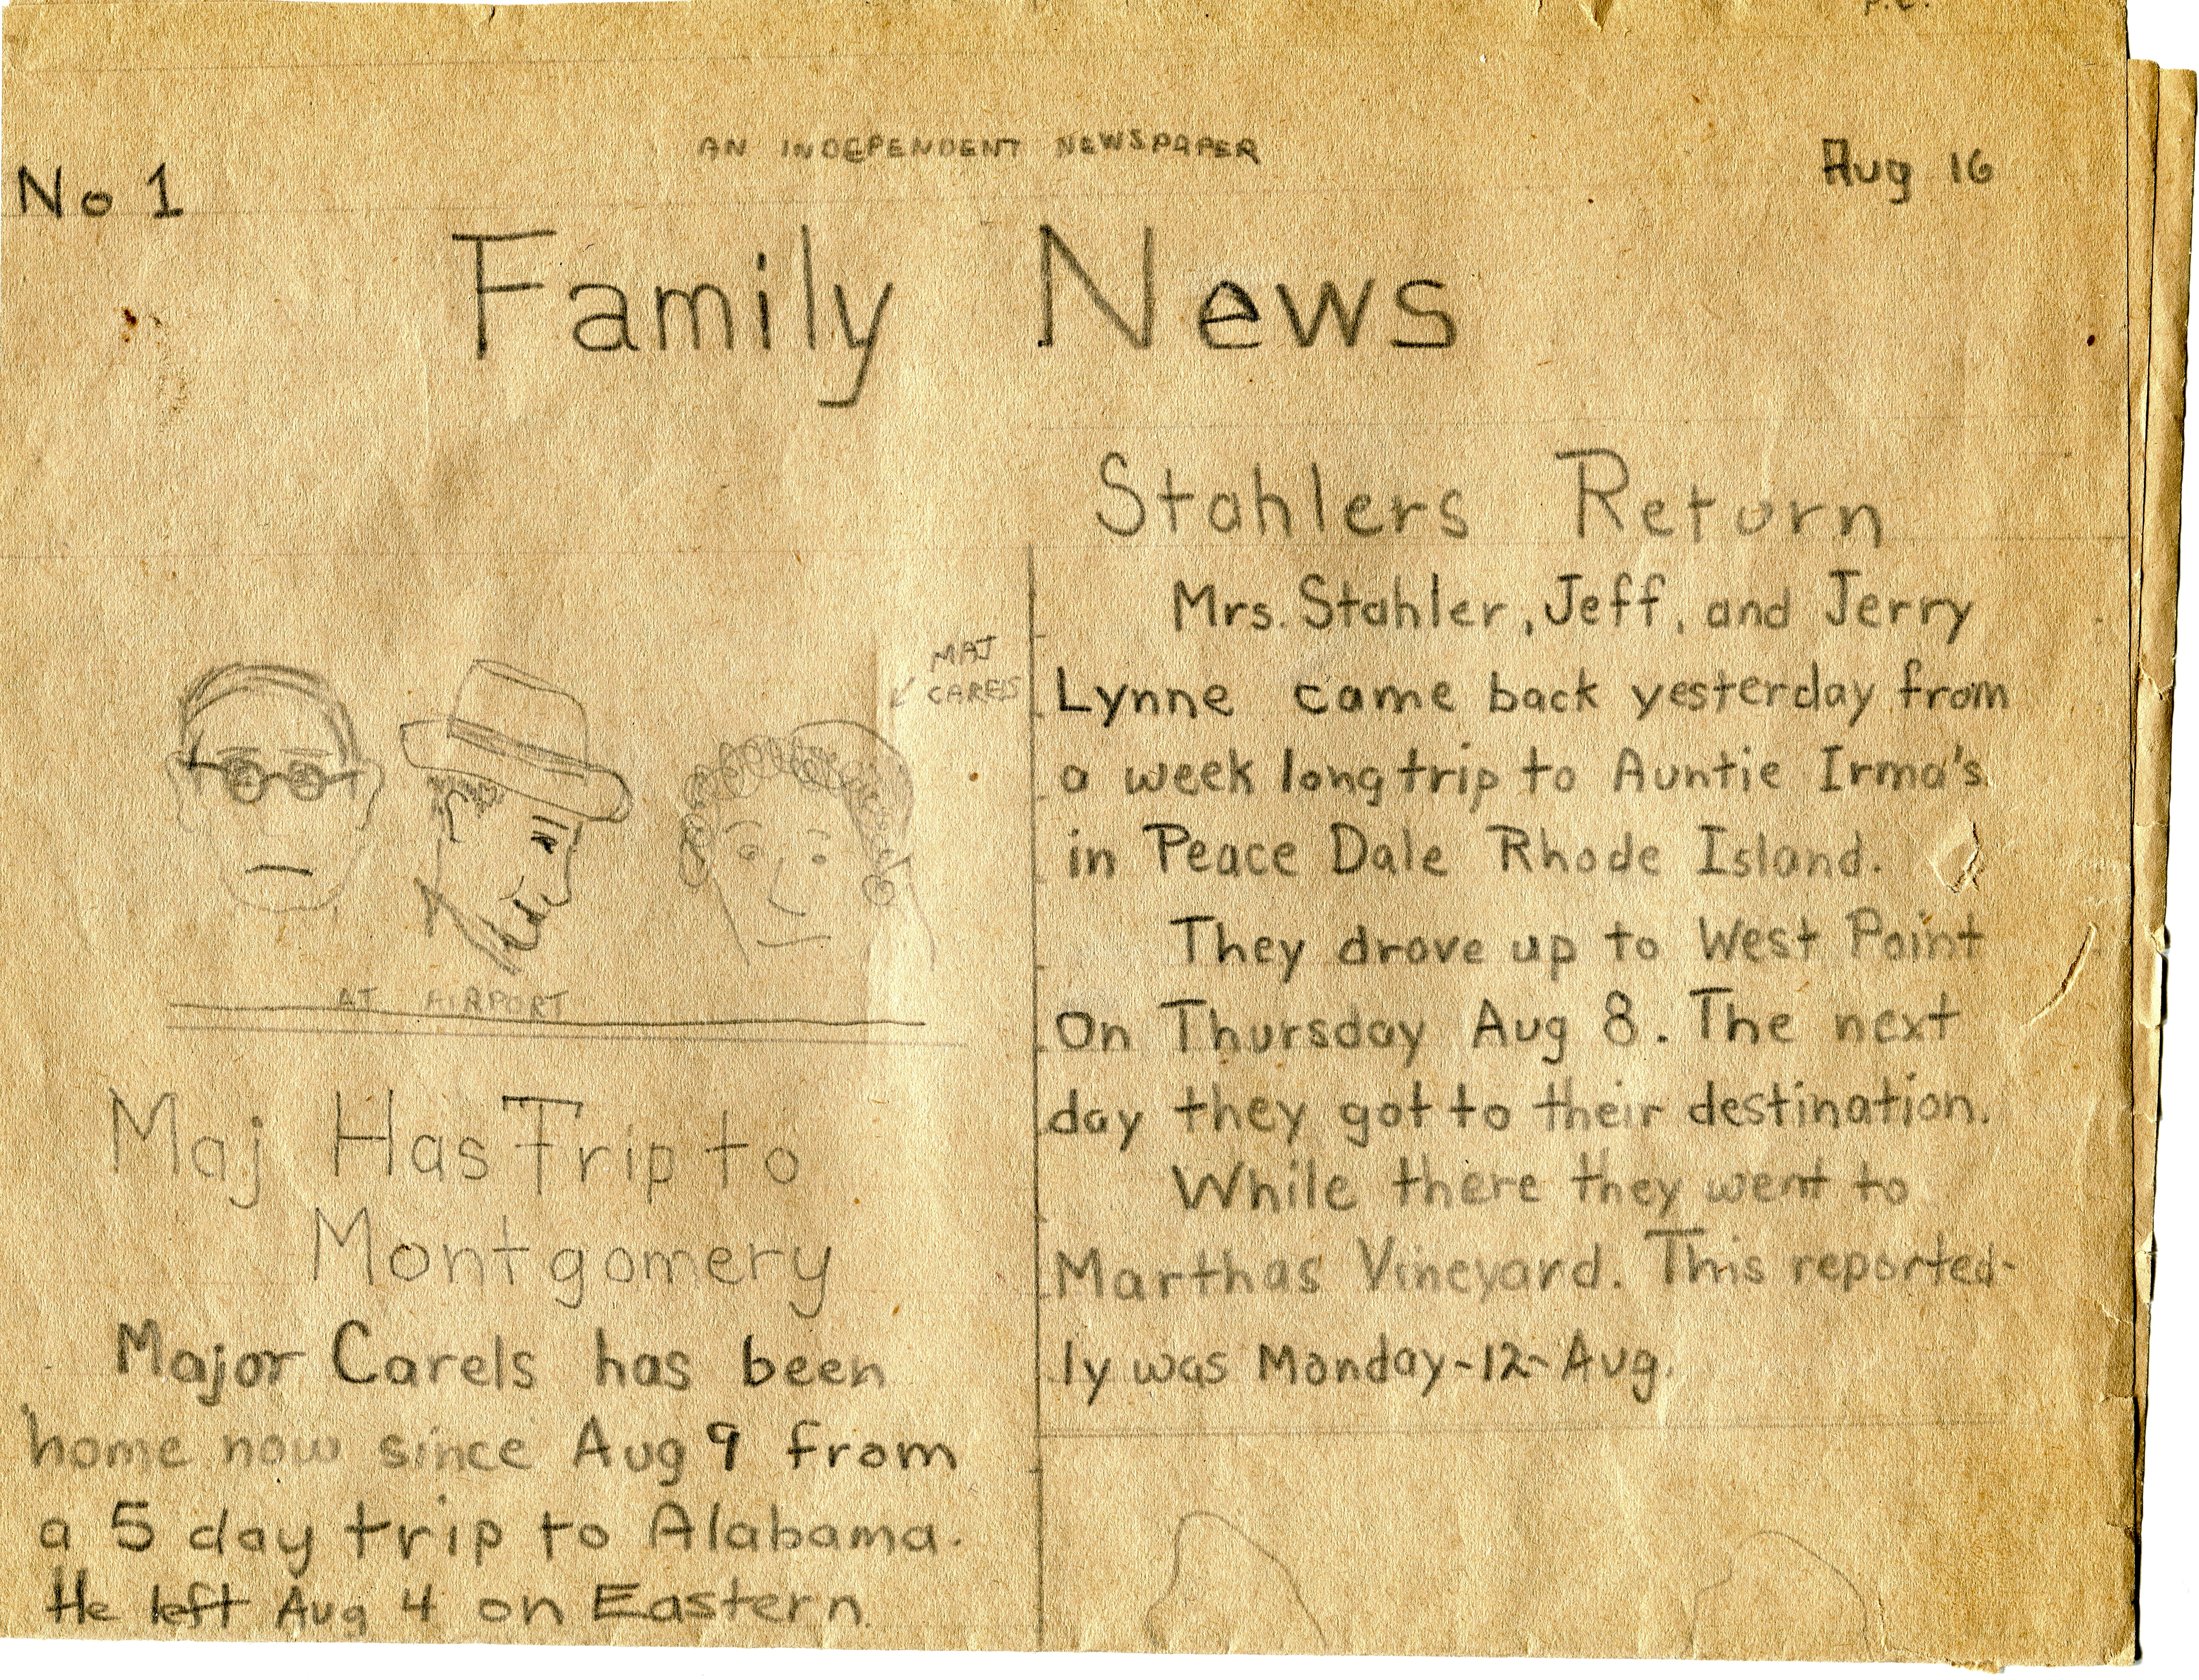 P.C.
AN INDEPENDENT NEWSPAPER
No 1
Aug 16
Family News
MAJ
CARELS
AT AIRPORT
Maj Has Trip to
Montgomery
Major Carels has been
home now since Aug 9 from
a 5 day trip to Alabama.
He left Aug 4 on Eastern.
Stahlers Return
Mrs. Stahler, Jeff, and Jerry
Lynne came back yesterday from
a week long trip to Auntie Irma's
in Peace Dale Rhode Island.
They drove up to West Point
On Thursday Aug 8. The next
day they got to their destination.
While there they went to
Marthas Vineyard. This reported-
ly was Monday-12-Aug.